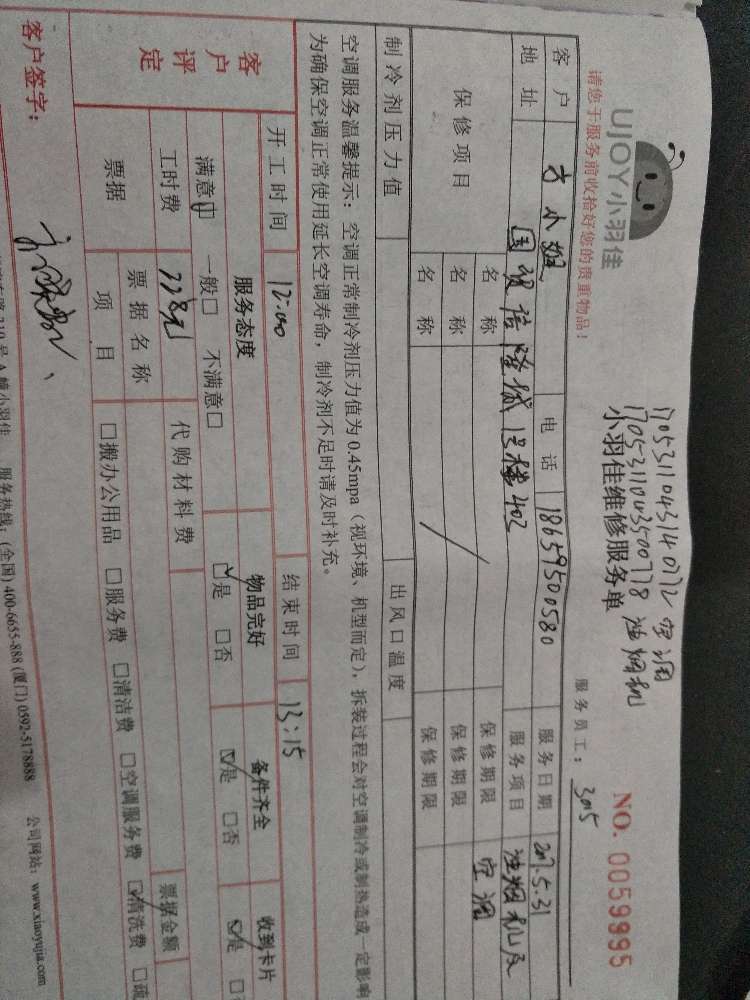 UJOY小羽佳
请您于服务前收拾好您的贵重物品!
1705311043140772 空调
1705311043500778 油烟机
小羽佳维修服务单
NO. 0059995
服务员工: 3015
客户 方小姐 电话 18659500580 服务日期 2017.5.31
地址 国贸 隆城 402 服务项目 油烟机及
空调
保修项目 名称 保修期限
名称 保修期限
名称 保修期限
制冷剂压力值 出风口温度
空调服务温馨提示:空调正常制冷剂压力值为0.45mpa(视环境、机型而定),拆装过程会对空调制冷或制热造成一定影响
为确保空调正常使用延长空调寿命,制冷剂不足时请及时补充。
开工时间 12:00 结束时间 13:15
客户评定
服务态度 物品完好 备件齐全 收到卡片
满意 一般□ 不满意□ 是 □否 是 □否 是
工时费 778元 代购材料费
票据 票据名称 票据金额
项目 □搬办公用品 □服务费 □清洁费 □空调服务费 清洗费 □疏
客户签字:
服务热线:(全国) 400-6655-888 (厦门) 0592-5178888 公司网站:www.xiaoyujia.com